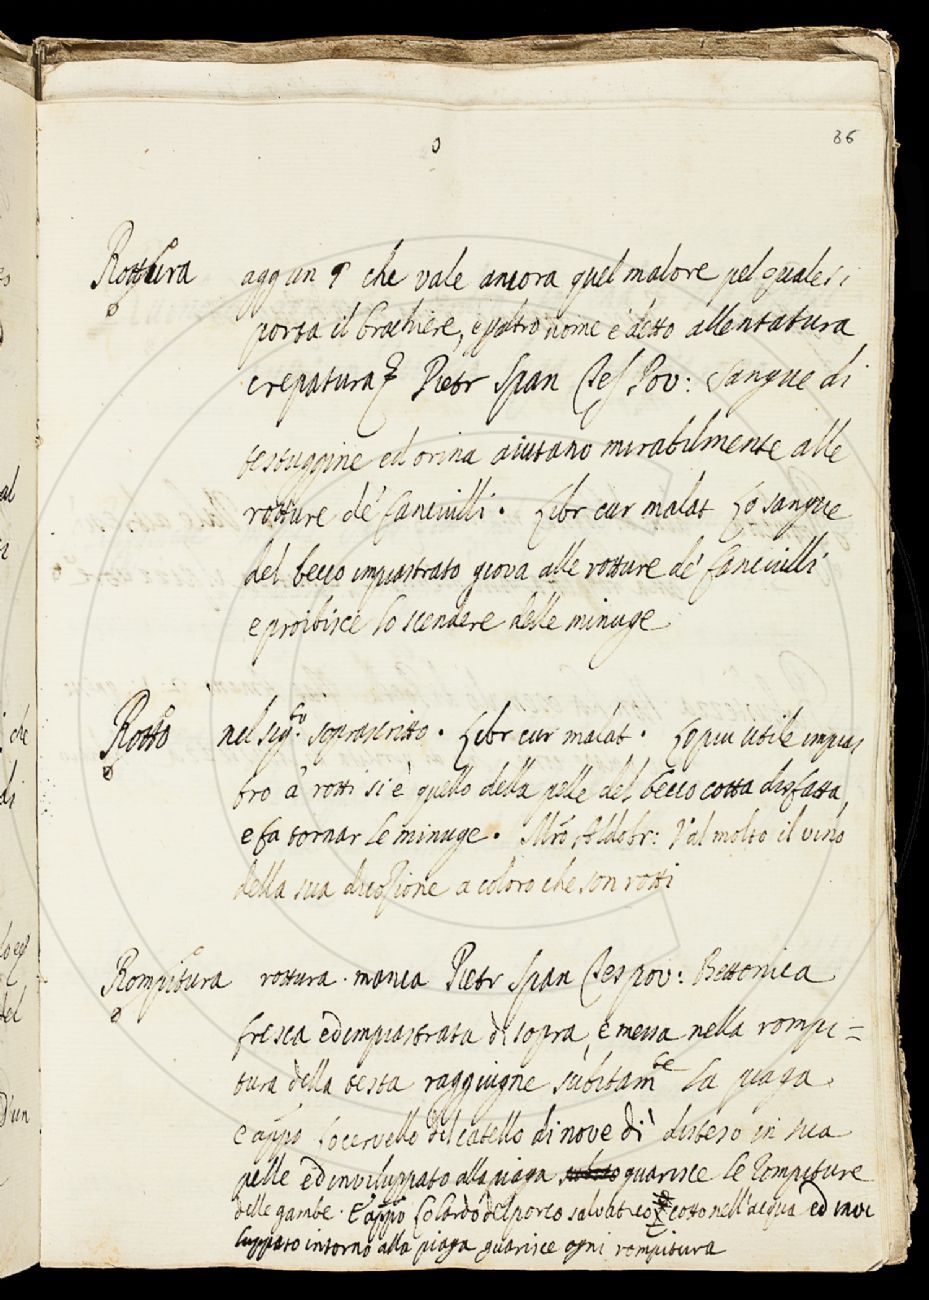 36
Rottura aggiun § che vale ancora quel malore pel quale si
porta il brachiere, e p altro nome è detto allentatura
crepatura Pietr Span Tes Pov: Sangue di
testuggine ed orina aiutano mirabilmente alle
rotture de' fanciulli. Libr cur malat Lo sangue
del becco impiastrato giova alle rotture de' fanciulli
e proibisce lo scendere delle minuge
Rotto nel sig.to soprascritto. Libr cur malat. Lo piu utile impias
tro à rotti si è quello della pelle del becco cotta disfatta,
e fa tornar le minuge. Mrõ Aldobr: Val molto il vino
della sua dicozione a coloro che son rotti
Rompitura rottura. manca Pietr Span Tes pov: Bettonica
fresca ed impiastrata di sopra, e messa nella rompi=
tura della testa raggiugne subitam.te la piaga
E appo Lo cervello del catello di nove dì disteso in sua
pelle ed inviluppato alla piaga guarisce le Rompiture
delle gambe. E appo Lo lardo del porco salvatico cotto nell'acqua ed invi
luppato intorno alla piaga guarisce ogni rompitura